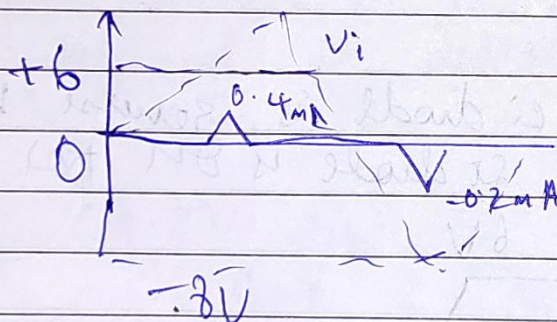 Vi
+6
0.4mA
0
-0.2mA
-8V